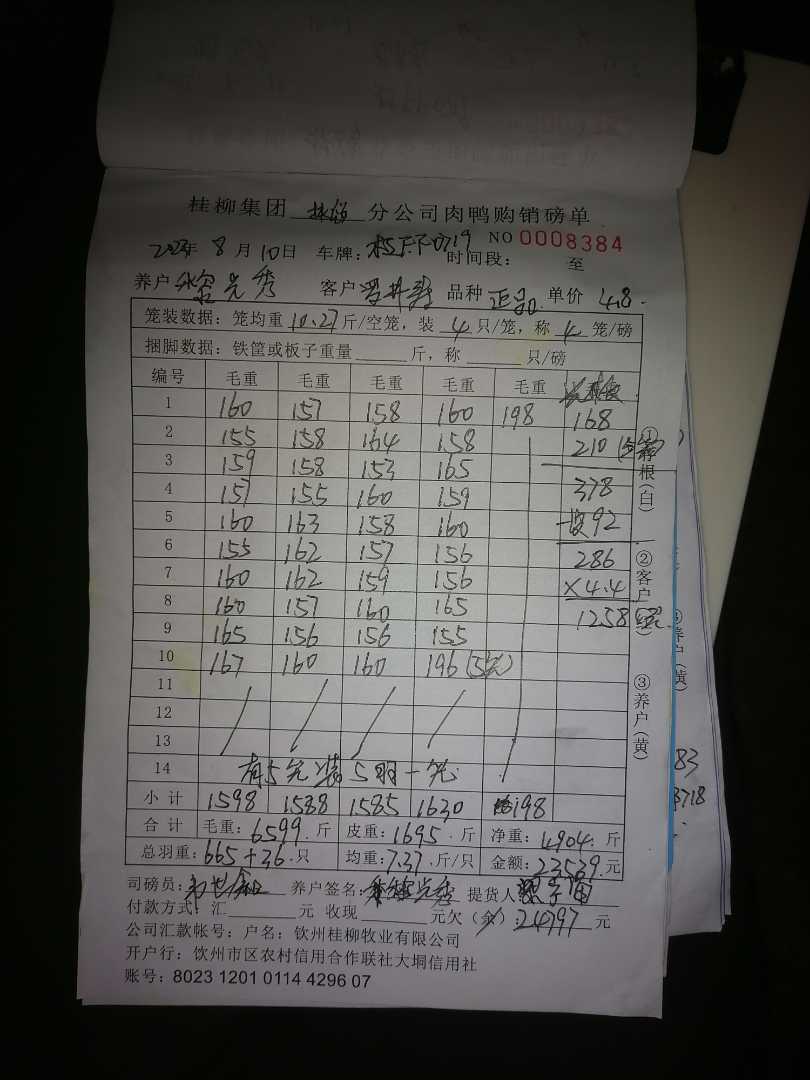 桂柳集团 分公司肉鸭购销磅单
2023年 8月10日 车牌: 0719 时间段: 至 NO 0008384
养户 光秀 客户 品种 正品 单价 4.8.
笼装数据: 笼均重 10.27 斤/空笼, 装 4 只/笼, 称 4 笼/磅
捆脚数据: 铁筐或板子重量 斤, 称 只/磅
编号 毛重 毛重 毛重 毛重 毛重
1 160 157 158 160 198 168
2 155 158 164 158 210
3 159 158 153 165
4 157 155 160 159 378
5 160 163 158 160 92
6 155 162 157 156 286
7 160 162 159 156 ×4.4
8 160 157 160 165 1258
9 165 156 156 155
10 167 160 160 196
11
12
13
14 有5 装5羽一
小计 1598 1588 1585 1630 198
合计 毛重: 6599. 斤 皮重: 1695. 斤 净重: 4904. 斤
总羽重: 665+36. 只 均重: 7.37. 斤/只 金额: 23539. 元
司磅员: 养户签名: 光秀 提货人
付款方式: 汇 元 收现 元欠 (余): 24797 元
公司汇款帐号: 户名: 钦州桂柳牧业有限公司
开户行: 钦州市区农村信用合作联社大垌信用社
账号: 8023 1201 0114 4296 07
①存根(白)
②客户
③养户(黄)
83
3718